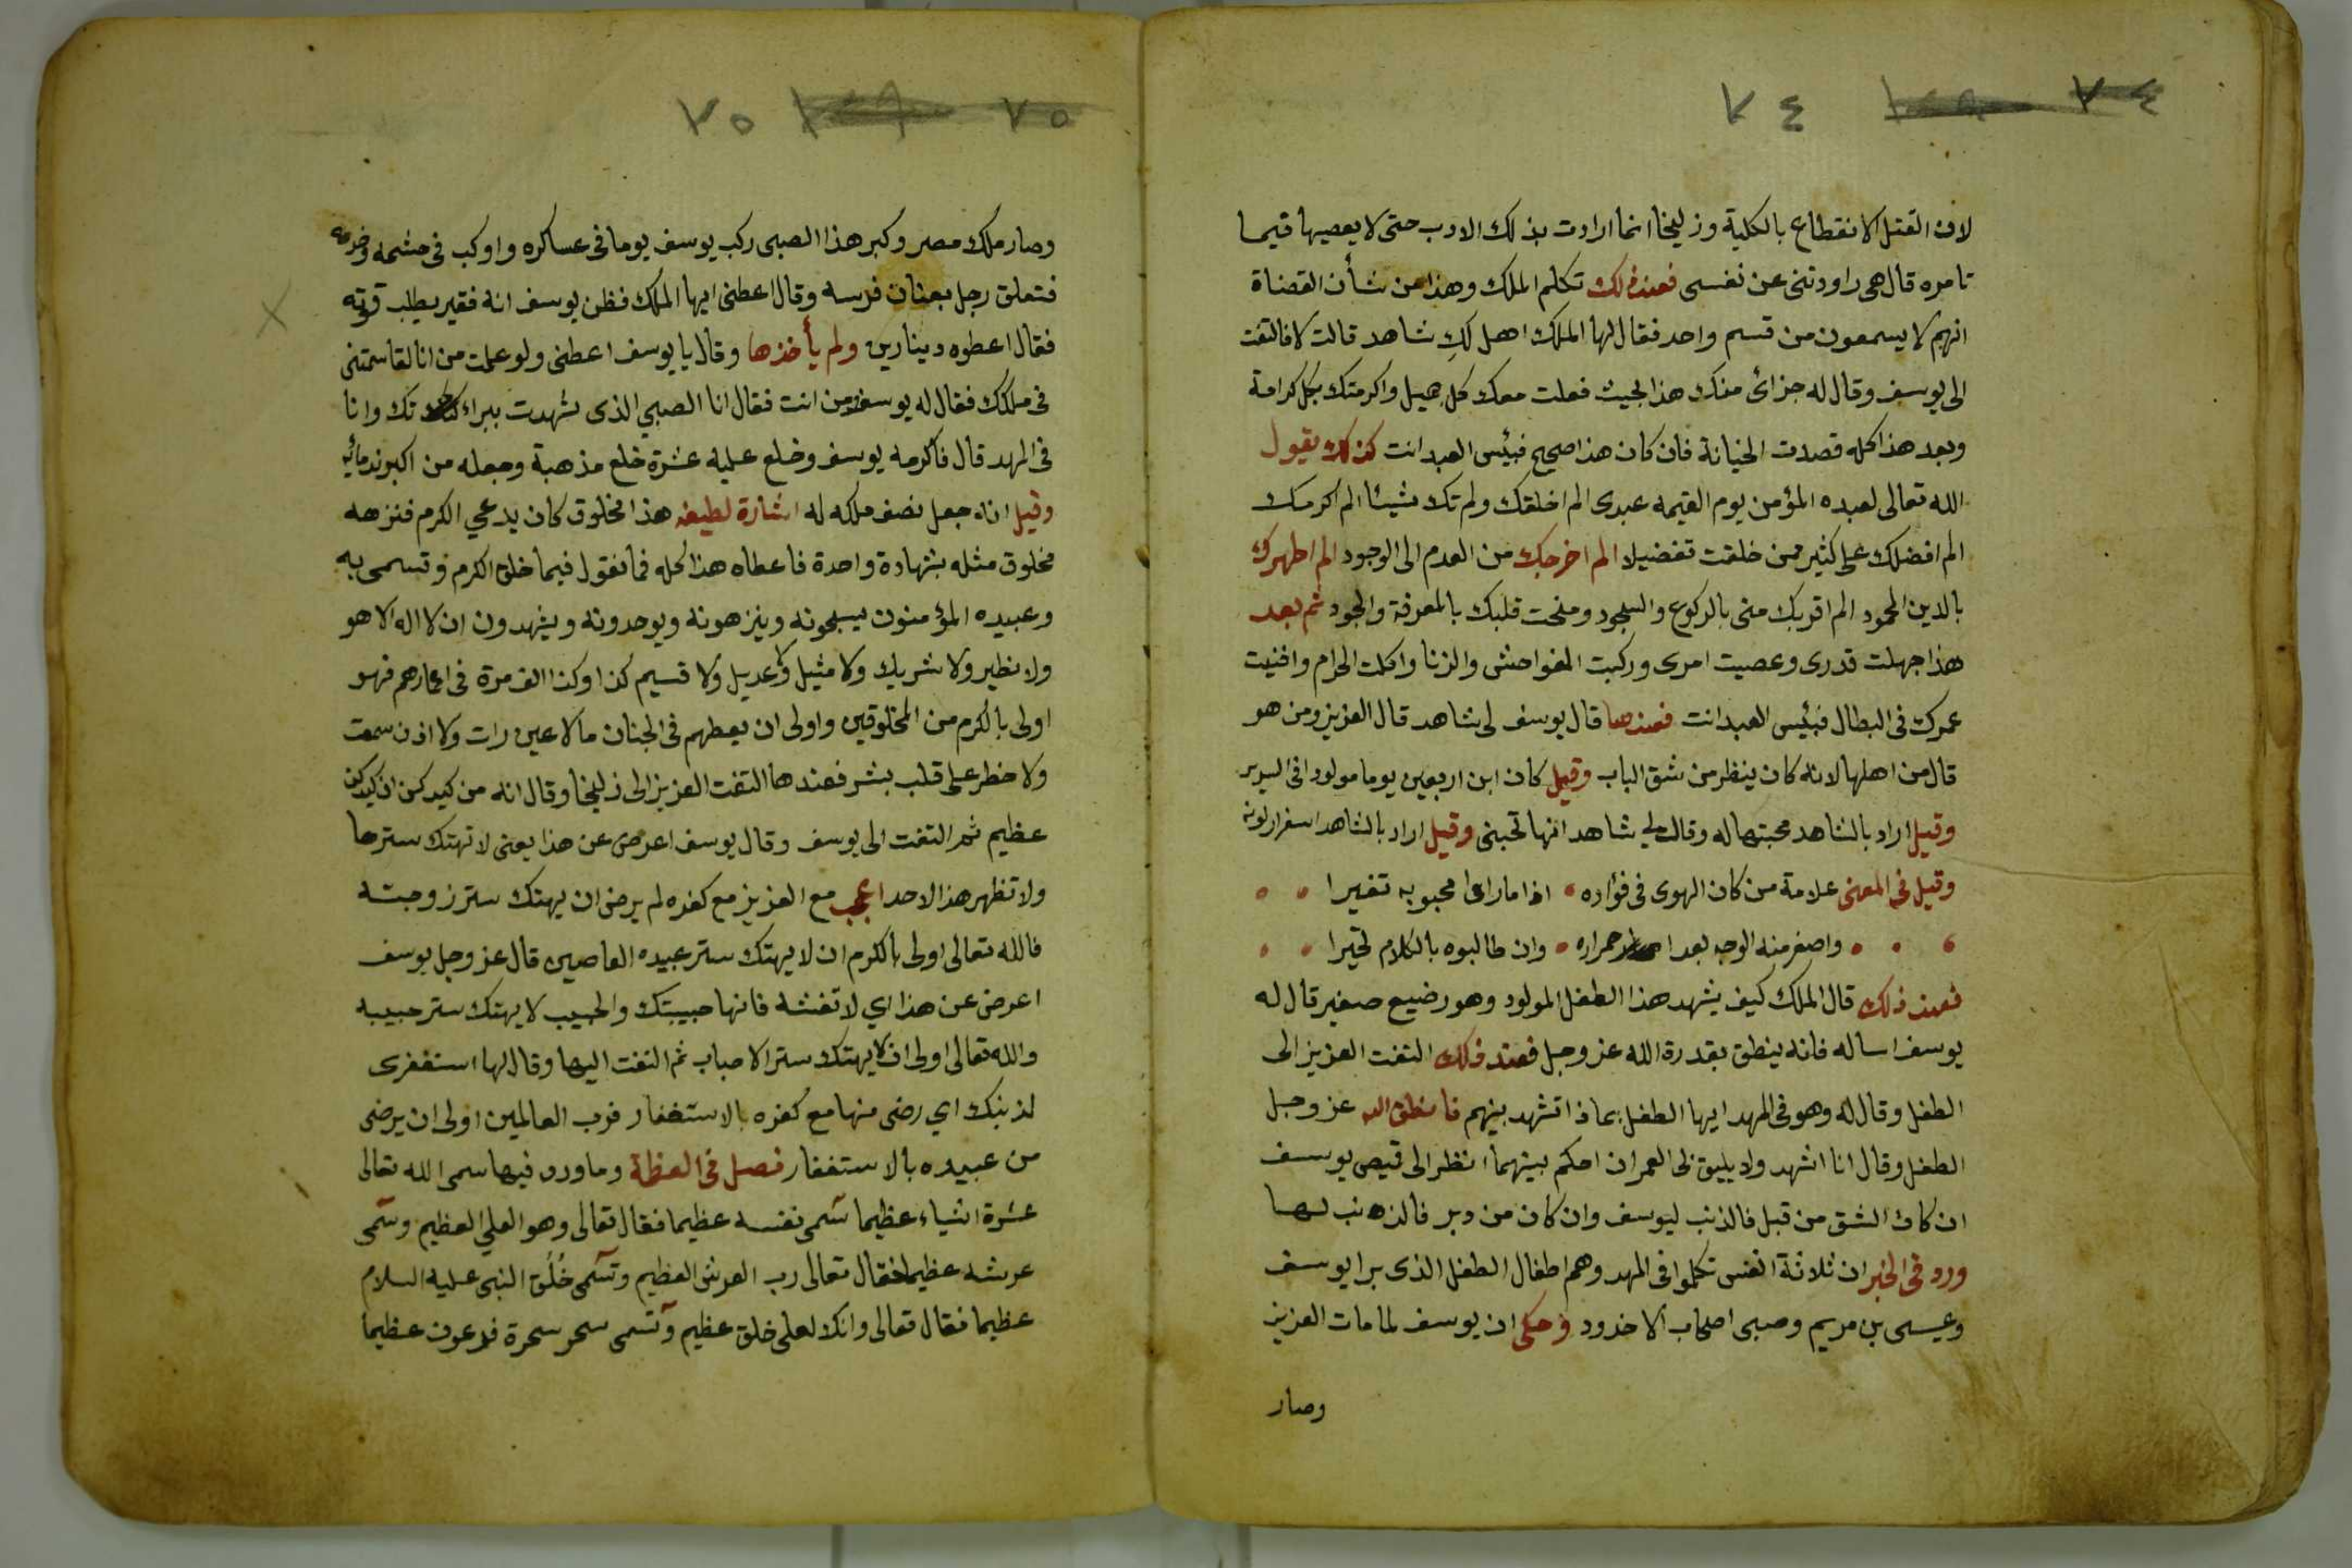 ٧٤
٧٤
لان القتل الانقطاع بالكلية وزليخا انما ارادت بذلك الادب حتى لا يعصيها فيما
تامره قال هي راودتنى عن نفسى فعند ذلك تكلم الملك وهذا من شأن القضاة
انهم لا يسمعون من قسم واحد فقال لها الملك اهل لك شاهد قالت لا فالتفت
الى يوسف وقال له جزائ منك هذا بحيث فعلت معك كل جميل واكرمتك بكل كرامة
وبعد هذا كله قصدت الخيانة فان كان هذا صحيح فبئس العبد انت كذلك يقول
الله تعالى لعبده المؤمن يوم القيمه عبدى الم اخلقك ولم تك شيئا الم اكرمك
الم افضلك على كثير ممن خلقت تفضيلا الم اخرجك من العدم الى الوجود الم اطهرك
بالدين المحمود الم اقربك منى بالركوع والسجود ومنحت قلبك بالمعرفة والجود ثم بعد
هذا جهلت قدرى وعصيت امرى وركبت الفواحش والزنا واكلت الحرام وافنيت
عمرك فى البطال فبئيس العبد انت فعندها قال يوسف لى شاهد قال العزيز ومن هو
قال من اهلها لانه كان ينظر من شق الباب وقيل كان ابن اربعين يوما مولودا فى السرير
وقيل اراد بالشاهد محبتها له وقال لي شاهد انها تحبنى وقيل اراد بالشاهد اسفرار لونه
وقيل فى المعنى علامة من كان الهوى فى فؤاده اذا ما راى محبوبه تغيرا
واصفر منه الوجه بعد احمراره وان طالبوه بالكلام تحيرا
فعند ذلك قال الملك كيف يشهد هذا الطفل المولود وهو رضيع صغير قال له
يوسف اساله فانه ينطق بقدرة الله عز وجل فعند ذلك التفت العزيز الى
الطفل وقال له وهو فى المهد ايها الطفل بماذا تشهد بينهم فانطق الله عز وجل
الطفل وقال انا اشهد ولا يليق لى العمر ان احكم بينهما انظر الى قميص يوسف
ان كان الشق من قبل فالذنب ليوسف وان كان من دبر فالذنب لها
ورد فى الخبر ان ثلاثة انفس تكلموا فى المهد وهم اطفال الطفل الذى برا يوسف
وعيسى بن مريم وصبى اصحاب الاخدود وحكى ان يوسف لما مات العزيز
وصار
٧٥
٧٥
وصار ملك مصر وكبر هذا الصبى ركب يوسف يوما فى عساكره واوكب فى حشمه وخدمه
فتعلق رجل بعنان فرسه وقال اعطنى ايها الملك فظن يوسف انه فقير يطلب قوته
فقال اعطوه دينارين ولم يأخذها وقال يا يوسف اعطنى ولو علمت من انا لقاسمتنى
فى ملكك فقال له يوسف ومن انت فقال انا الصبي الذى شهدت ببراءتك وانا
فى المهد قال فاكرمه يوسف وخلع عليه عشرة خلع مذهبة وجعله من اكبر ندمائه
وقيل انه جعل نصف ملكه له اشارة لطيفه هذا مخلوق كان يدعي الكرم فنزهه
مخلوق مثله بشهادة واحدة فاعطاه هذا كله فما نقول فيما خلق الكرم وتسمى به
وعبيده المؤمنون يسبحونه وينزهونه ويوحدونه ويشهدون ان لا اله الا هو
ولا نظير ولا شريك ولا مثيل ولا عديل ولا قسيم كذا وكذا الف مرة فى اعمارهم فهو
اولى بالكرم من المخلوقين واولى ان يعطهم فى الجنان ما لا عين رات ولا اذن سمعت
ولا خطر على قلب بشر فعندها التفت العزيز الى زليخا وقال انه من كيدكن ان كيدكن
عظيم ثم التفت الى يوسف وقال يوسف اعرض عن هذا يعنى لا تهتك سترها
ولا تظهر هذا لاحد اعجب مع العزيز مع كفره لم يرض ان يهتك ستر زوجته
فالله تعالى اولى بالكرم ان لا يهتك ستر عبيده العاصين قال عز وجل يوسف
اعرض عن هذا اي لا تفشه فانها حبيبتك والحبيب لا يهتك ستر حبيبه
والله تعالى اولى ان لا يهتك ستر الاحباب ثم التفت اليها وقال لها استغفرى
لذنبك اي رضى منها مع كفره بالاستغفار فرب العالمين اولى ان يرضى
من عبيده بالاستغفار فصل فى العظة وما ورد فيها سمى الله تعالى
عشرة اشياء عظيما سمى نفسه عظيما فقال تعالى وهو العلي العظيم وسمى
عرشه عظيما فقال تعالى رب العرش العظيم وتسمى خُلُق النبى عليه السلام
عظيما فقال تعالى وانك لعلى خلق عظيم وتسمى سحر سحرة فرعون عظيما